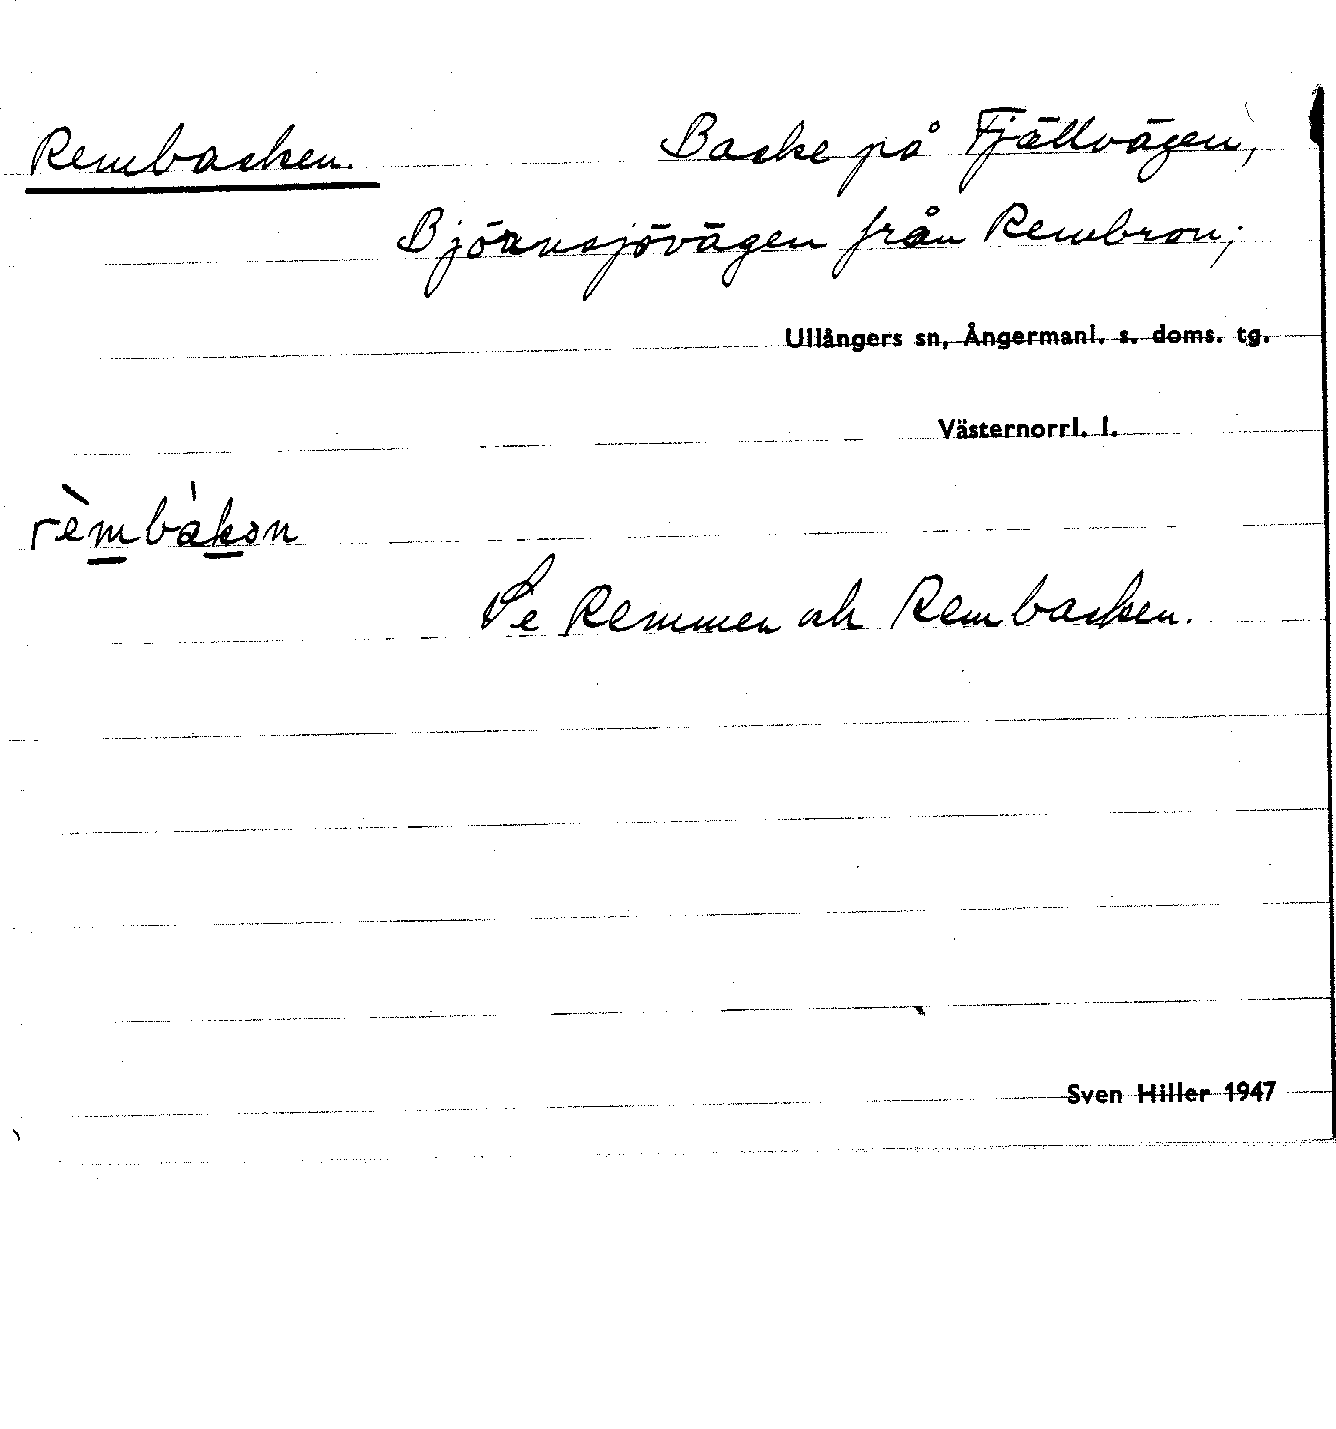 Rembacken. Backe på Fjällvägen,
Björnsjövägen från Rembron;
Ullångers sn, Ångermanl. s. doms. tg.
Västernorrl. l.
rèmbàkən
Se Remmen och Rembacken.
Sven Hiller 1947